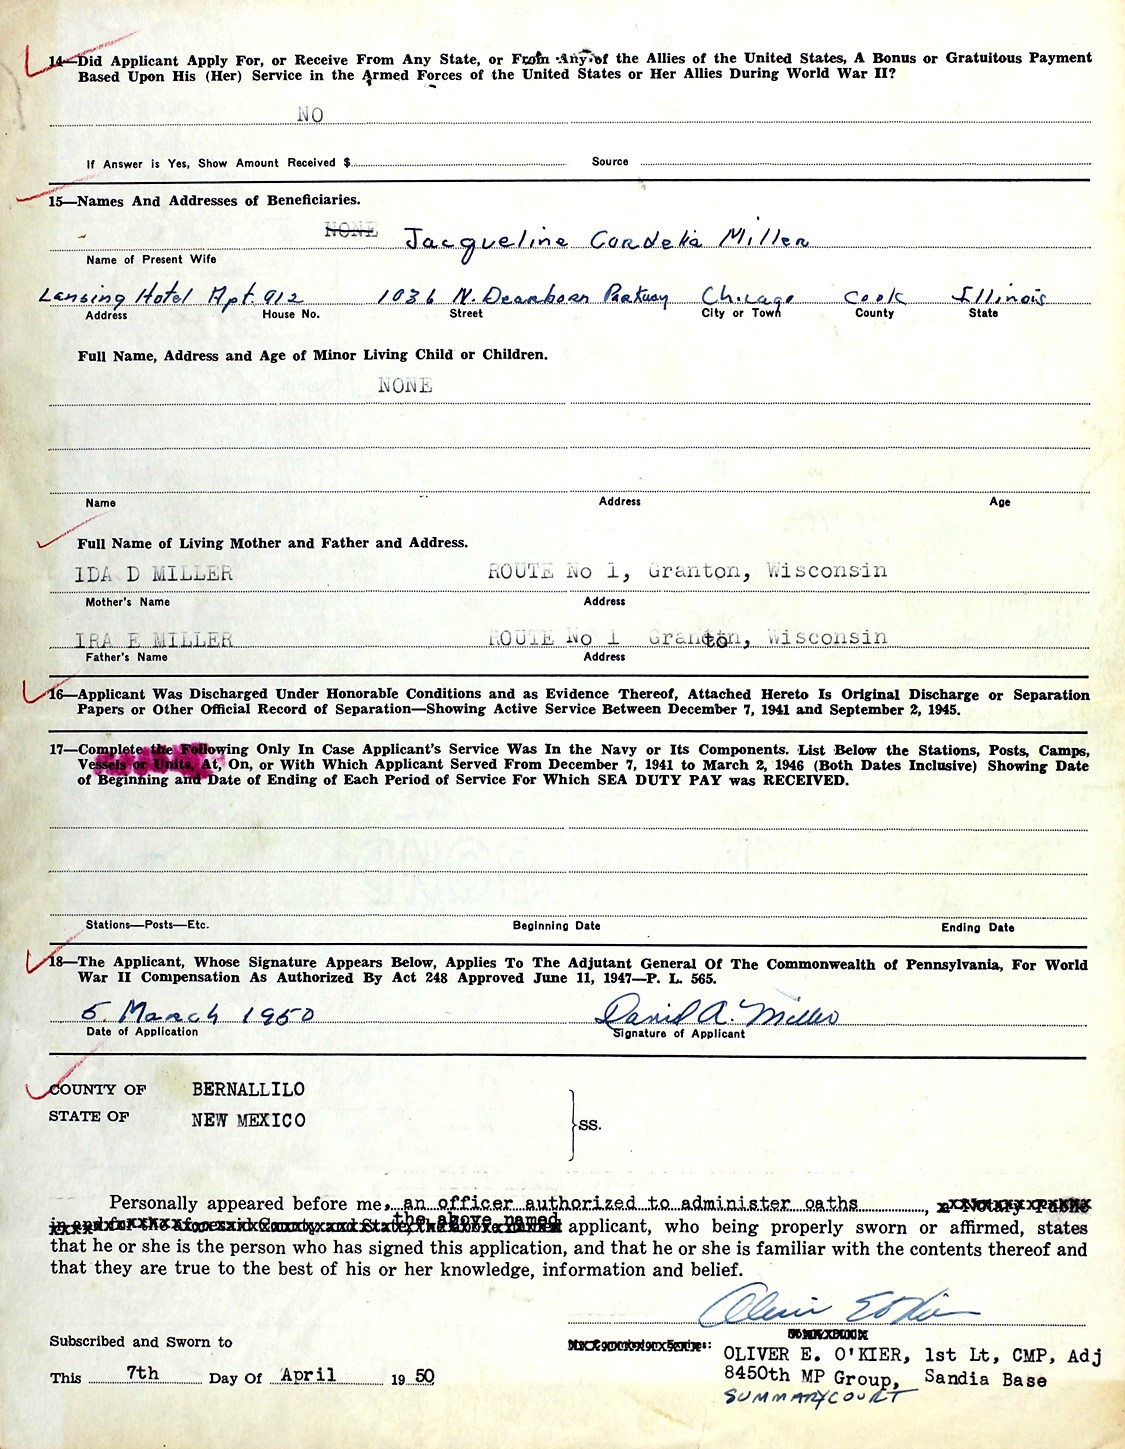 14—Did Applicant Apply For, or Receive From Any State, or From Any of the Allies of the United States, A Bonus or Gratuitous Payment
Based Upon His (Her) Service in the Armed Forces of the United States or Her Allies During World War II?
NO
If Answer is Yes, Show Amount Received $ Source
15—Names And Addresses of Beneficiaries.
NONE Jacqueline Cordelia Miller
Name of Present Wife
Lansing Hotel Apt. 912 1036 N. Dearborn Parkway Chicago Cook Illinois
Address House No. Street City or Town County State
Full Name, Address and Age of Minor Living Child or Children.
NONE
Name Address Age
Full Name of Living Mother and Father and Address.
IDA D MILLER ROUTE No 1, Granton, Wisconsin
Mother's Name Address
IRA E MILLER ROUTE No 1 Granton, Wisconsin
Father's Name Address
16—Applicant Was Discharged Under Honorable Conditions and as Evidence Thereof, Attached Hereto Is Original Discharge or Separation
Papers or Other Official Record of Separation—Showing Active Service Between December 7, 1941 and September 2, 1945.
17—Complete the Following Only In Case Applicant's Service Was In the Navy or Its Components. List Below the Stations, Posts, Camps,
Vessels or Units, At, On, or With Which Applicant Served From December 7, 1941 to March 2, 1946 (Both Dates Inclusive) Showing Date
of Beginning and Date of Ending of Each Period of Service For Which SEA DUTY PAY was RECEIVED.
Stations—Posts—Etc. Beginning Date Ending Date
18—The Applicant, Whose Signature Appears Below, Applies To The Adjutant General Of The Commonwealth of Pennsylvania, For World
War II Compensation As Authorized By Act 248 Approved June 11, 1947—P. L. 565.
5 March 1950 David A. Miller
Date of Application Signature of Applicant
COUNTY OF BERNALLILO
STATE OF NEW MEXICO
SS.
Personally appeared before me, an officer authorized to administer oaths,
the above named applicant, who being properly sworn or affirmed, states
that he or she is the person who has signed this application, and that he or she is familiar with the contents thereof and
that they are true to the best of his or her knowledge, information and belief.
Subscribed and Sworn to
OLIVER E. O'KIER, 1st Lt, CMP, Adj
This 7th Day Of April 19 50 8450th MP Group, Sandia Base
SUMMARY COURT